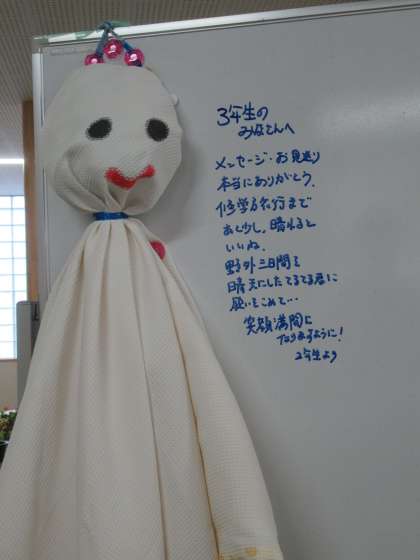 3年生の
みなさんへ
メッセージ・お見送り
本当にありがとう。
修学旅行まで
あと少し。晴れると
いいね。
野外三日間を
晴天にしたてるてる君に
願いをこめて…
笑顔満開に
なりますように!
2年生より